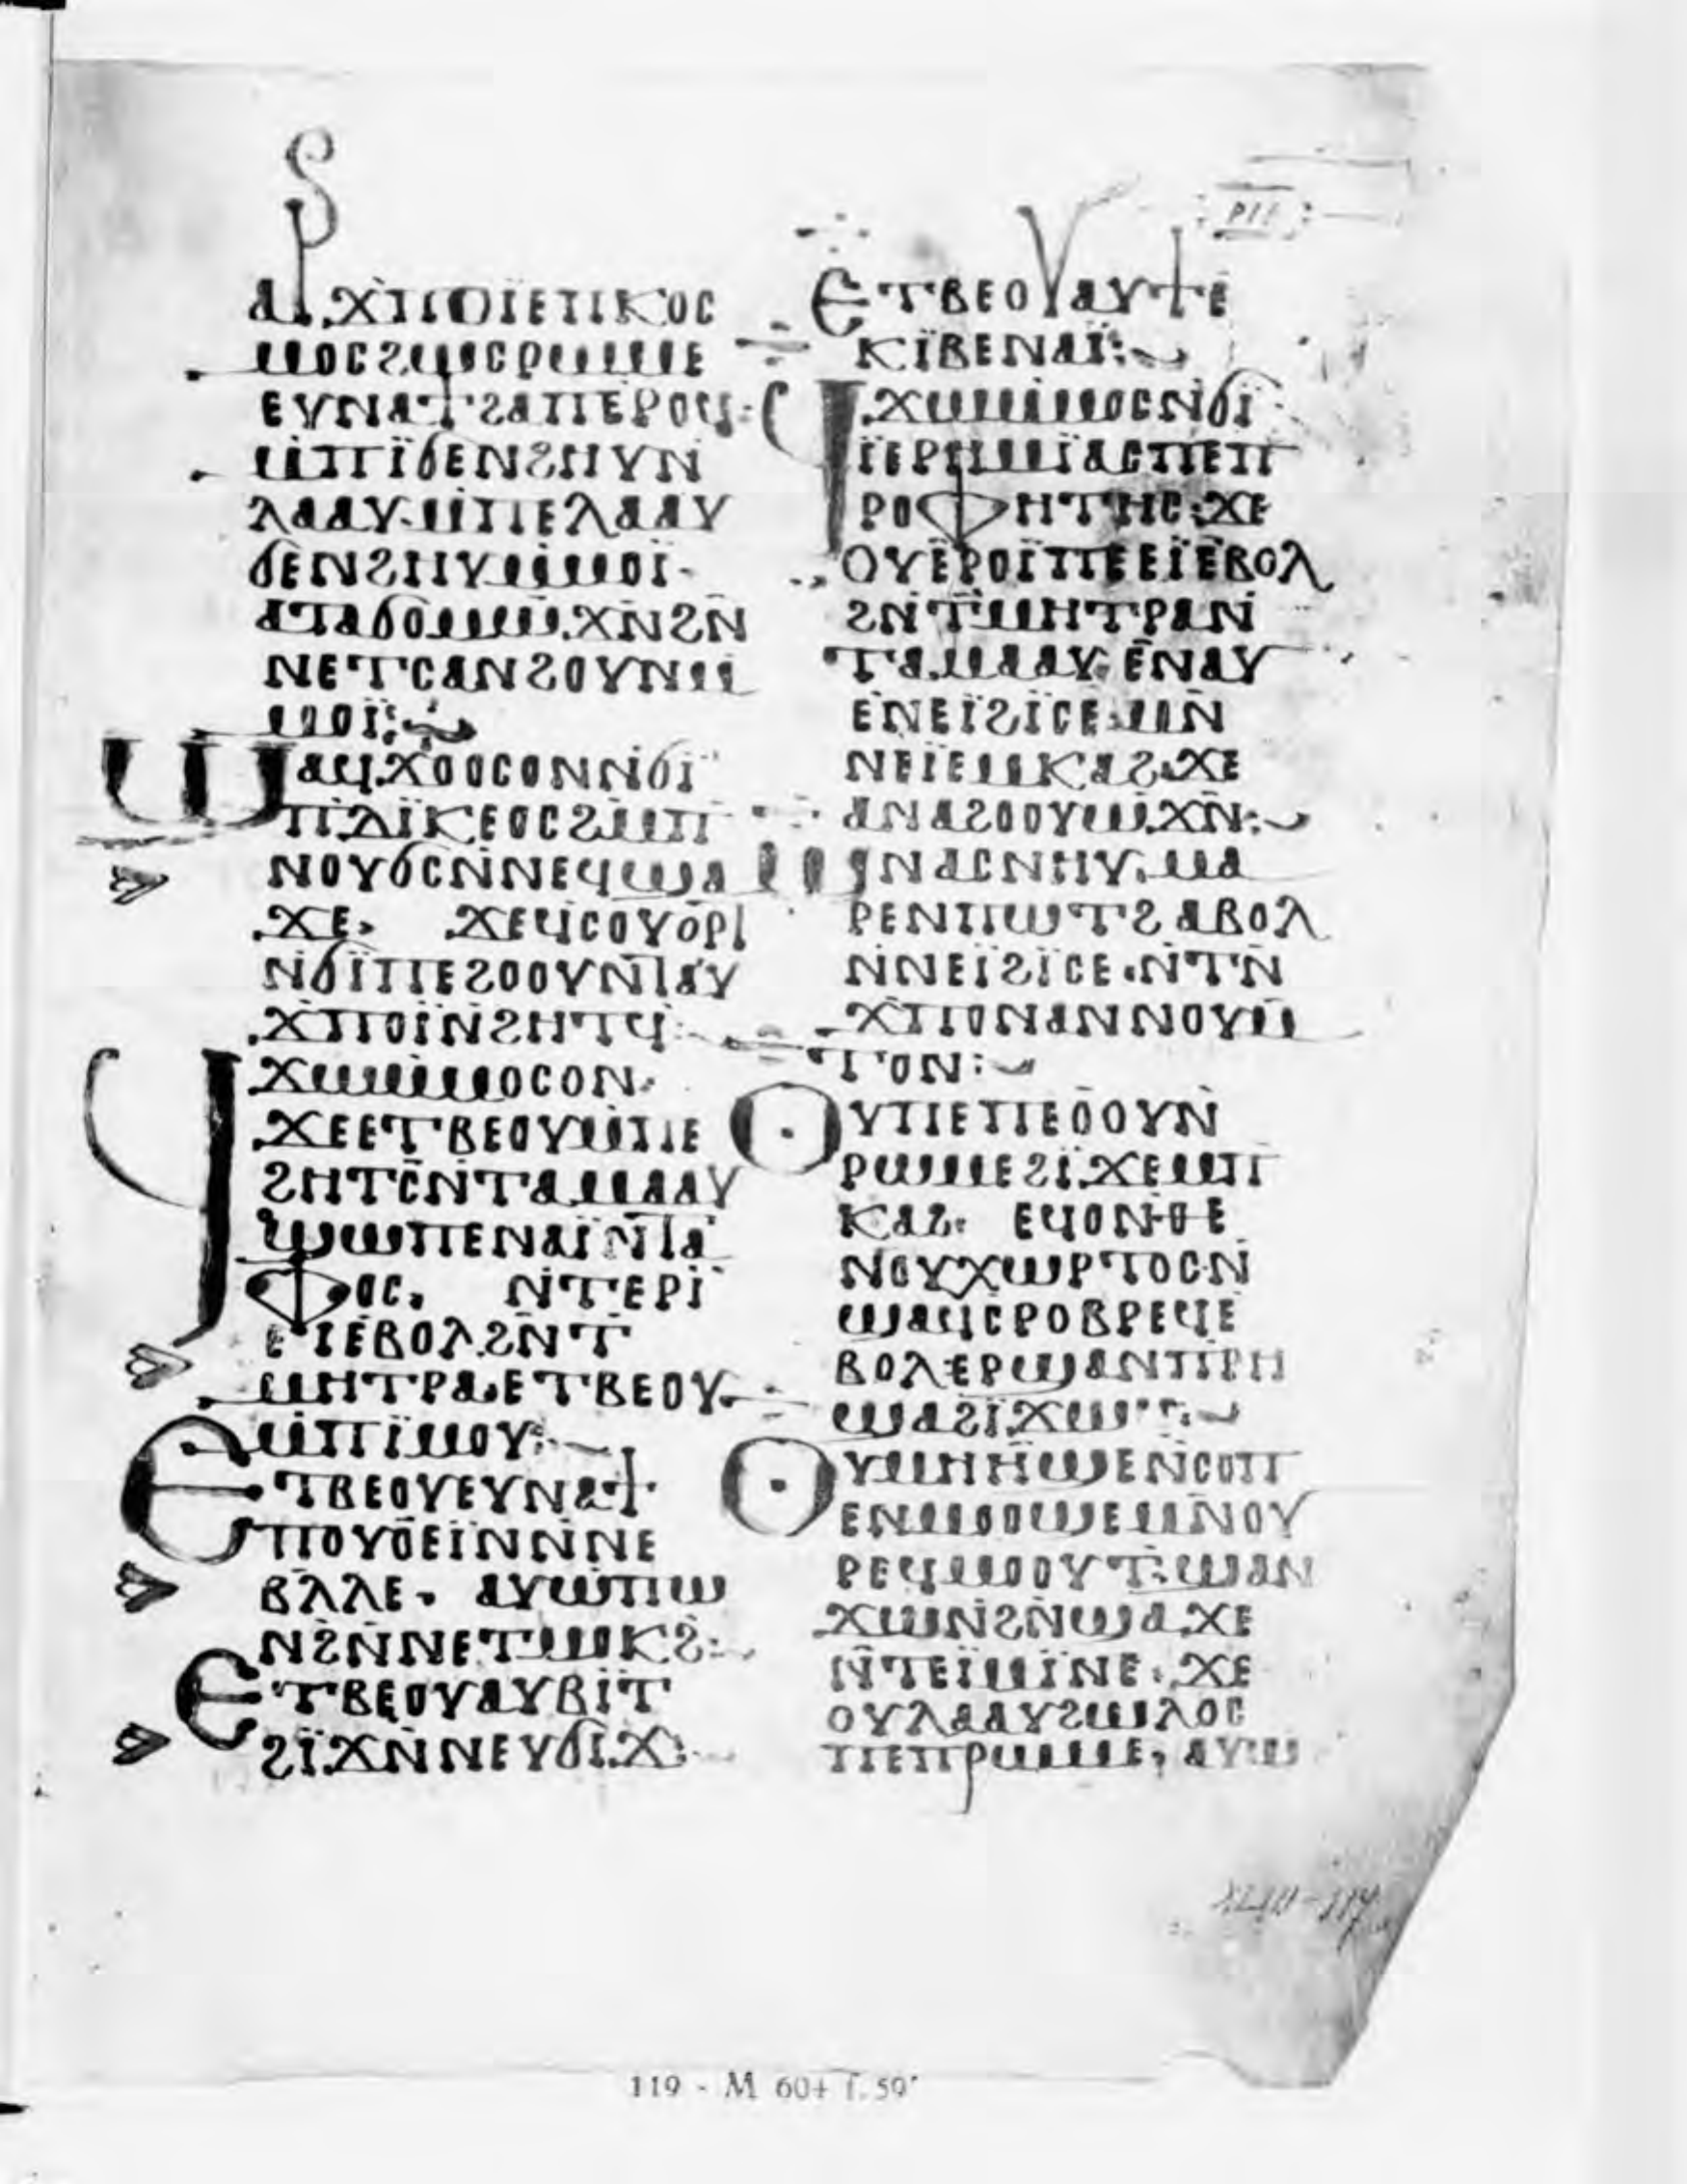 ⲁⲣϫⲡⲟⲓ̈ⲉⲧⲓⲕⲟⲥ
ⲙⲟⲥϩⲱⲥⲣⲱⲙⲉ
ⲉⲩⲛⲁϯϩⲁⲡⲉⲣⲟϥ·
ⲙ̇ⲡⲓ̈ϭⲉⲛϩⲏⲩⲛ̇
ⲗⲁⲁⲩ·ⲙ̇ⲡⲉⲗⲁⲁⲩ
ϭⲉⲛϩⲏⲩⲙ̇ⲙⲟⲓ̈·
ⲁⲧⲁϭⲟⲙⲱϫⲛ̄ϩⲛ̄
ⲛⲉⲧⲥⲁⲛϩⲟⲩⲛⲙ̇
ⲙⲟⲓ̈:
ϣⲁϥϫⲟⲟⲥⲟⲛⲛ̇ϭⲓ̈
ⲡⲓⲇⲓ̈ⲕⲉⲟⲥϩⲙ̇ⲡ
ⲛⲟⲩϭⲥⲛ̇ⲛⲉϥϣⲁ
ϫⲉ· ϫⲉϥⲥⲟⲩⲟⲣⲧ
ⲛ̇ϭⲓ̈ⲡⲉϩⲟⲟⲩⲛ̇ⲧⲁⲩ
ϫⲡⲟⲓ̈ⲛ̇ϩⲏⲧϥ̇:
ϥϫⲱⲙ̇ⲙⲟⲥⲟⲛ·
ϫⲉⲉⲧⲃⲉⲟⲩⲙ̇ⲡⲉ
ϩⲏⲧⲥ̄ⲛ̇ⲧⲁⲙⲁⲁⲩ
ϣⲱⲡⲉⲛⲁⲓ̈ⲛ̇ⲧⲁ
ⲫⲟⲥ· ⲛ̇ⲧⲉⲣⲓ
ⲉⲓⲉⲃⲟⲗϩⲛ̄ⲧ
ⲙⲏⲧⲣⲁ·ⲉⲧⲃⲉⲟⲩ
ⲙ̇ⲡⲓ̈ⲙⲟⲩ:
ⲉⲧⲃⲉⲟⲩⲉⲩⲛⲁϯ
ⲡⲟⲩⲟⲉⲓ̈ⲛⲛ̇ⲛⲉ
ⲃⲗ̄ⲗⲉ· ⲁⲩⲱⲡⲱ
ⲛϩ̄ⲛ̇ⲛⲉⲧⲙⲟⲕϩ̄:
ⲉⲧⲃⲉⲟⲩⲁⲩⲃⲓ̈ⲧ
ϩⲓ̈ϫⲛ̄ⲛⲉⲩϭⲓϫ:
ⲉⲧⲃⲉⲟⲩⲁⲩϯⲉ
ⲕⲓ̈ⲃⲉⲛⲁⲓ̈:
ϥϫⲱⲙ̇ⲙⲟⲥⲛ̇ϭⲓ̈
ⲓ̈ⲉⲣⲏⲙⲓ̈ⲁⲥⲡⲉⲡ
ⲣⲟⲫⲏⲧⲏⲥ·ϫⲉ
ⲟⲩⲉⲣⲟⲓ̈ⲡⲉⲉⲓ̈ⲉⲃⲟⲗ
ϩⲛ̇ⲧⲙⲏⲧⲣⲁⲛ̇
ⲧⲁⲙⲁⲁⲩ·ⲉⲛⲁⲩ
ⲉⲛⲉⲓ̈ϩⲓ̈ⲥⲉ·ⲙⲛ̄
ⲛⲉⲓ̈ⲉⲙⲕⲁϩ·ϫⲉ
ⲁⲛⲁϩⲟⲟⲩⲱϫⲛ̄:
ⲛⲁⲥⲛⲏⲩ·ⲙⲁ
ⲣⲉⲛⲡⲱⲧϩⲁⲃⲟⲗ
ⲛ̇ⲛⲉⲓ̈ϩⲓ̈ⲥⲉ·ⲛ̇ⲧⲛ̄
ϫⲡⲟⲛⲁⲛⲛⲟⲩⲙ̄
ⲧⲟⲛ:
ⲟⲩⲡⲉⲡⲉⲟⲟⲩⲛ̇
ⲣⲱⲙⲉϩⲓ̈ϫⲉⲙⲡ
ⲕⲁϩ· ⲉϥⲟⲛ̇ⲑⲉ
ⲛⲟⲩⲭⲱⲣⲧⲟⲥⲛ̇
ϣⲁϥⲥⲣⲟⲃⲣⲉϥⲉ
ⲃⲟⲗⲉⲣϣⲁⲛⲡⲣⲏ
ϣⲁϩⲓ̈ϫⲱϥ:
ⲟⲩⲙⲏⲏϣⲉⲛ̇ⲥⲟⲡ
ⲉⲛⲙⲟⲟϣⲉⲙⲛ̄ⲟⲩ
ⲣⲉϥⲙⲟⲟⲩⲧ·ϣⲁⲛ
ϫⲱⲛ̇ϩⲛ̄ϣⲁϫⲉ
ⲛ̇ⲧⲉⲓ̈ⲙⲓ̈ⲛⲉ·ϫⲉ
ⲟⲩⲗⲁⲁⲩϩⲱⲗⲟⲥ
ⲡⲉⲡⲣⲱⲙⲉ· ⲁⲩⲱ
119 - M 604 f. 59ʳ